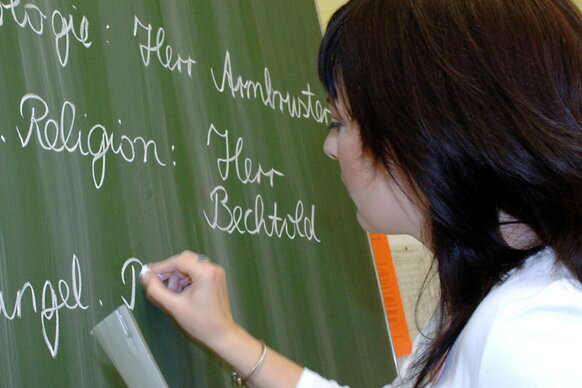 ologie: Herr Armbruster
. Religion: Herr
Bechtold
angel. R